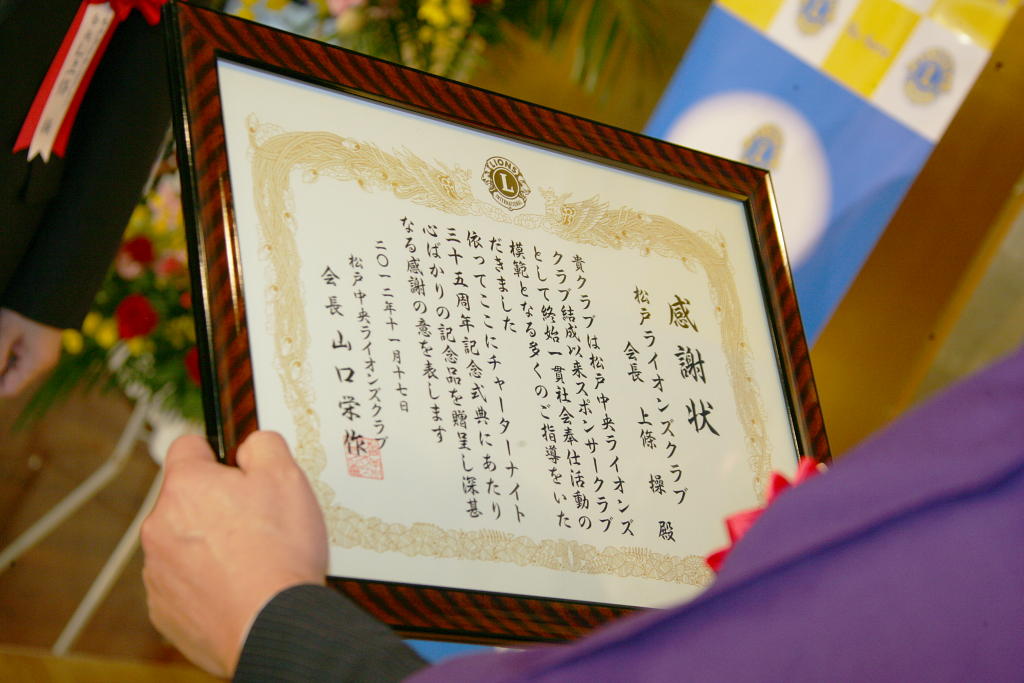 LIONS
L
INTERNATIONAL
感謝状
松戸ライオンズクラブ
会長 上條 操 殿
貴クラブは松戸中央ライオンズ
クラブ結成以来スポンサークラブ
として終始一貫社会奉仕活動の
模範となる多くのご指導をいた
だきました
依ってここにチャーターナイト
三十五周年記念式典にあたり
心ばかりの記念品を贈呈し深甚
なる感謝の意を表します
二〇一二年十一月十七日
松戸中央ライオンズクラブ
会長 山口栄作
L
L